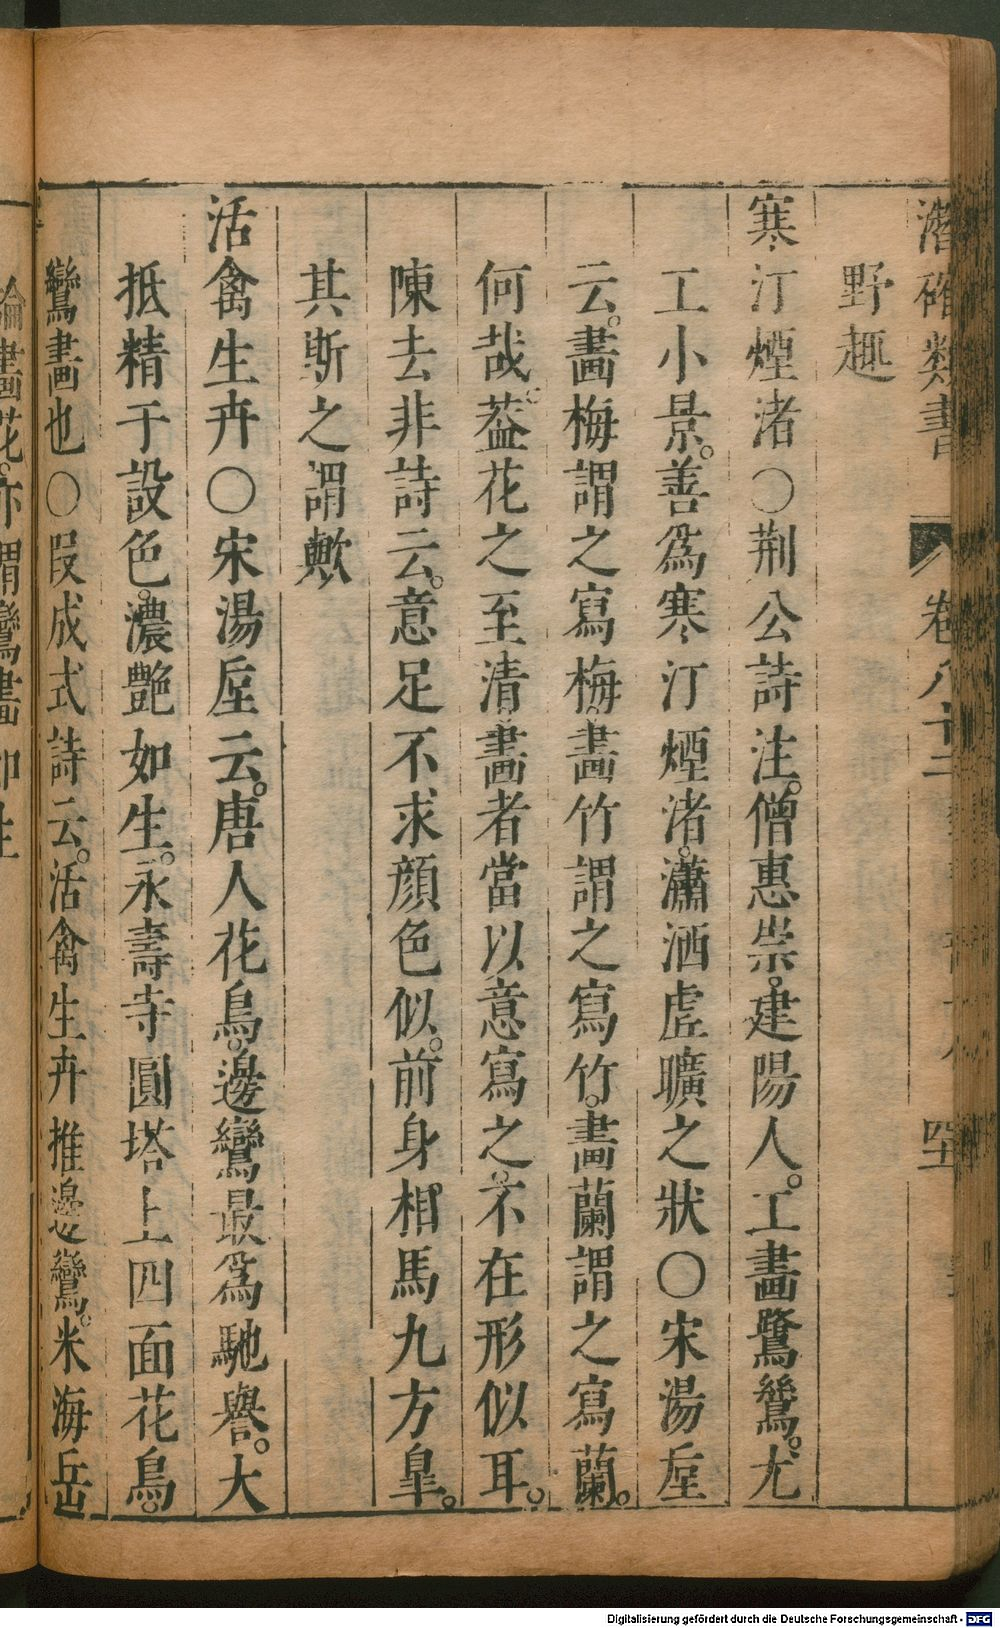 潛確類書 卷八十二
野趣
寒汀煙渚○荆公詩注。僧惠崇。建陽人。工畫鷺鷥。尤
工小景。善爲寒汀煙渚。瀟洒虛曠之狀○宋湯垕
云。畫梅謂之寫梅。畫竹謂之寫竹。畫蘭謂之寫蘭。
何哉。葢花之至清。畫者當以意寫之。不在形似耳。
陳去非詩云。意足不求顔色似。前身相馬九方臯。
其斯之謂歟
活禽生卉○宋湯垕云。唐人花鳥。邊鸞最爲馳譽。大
抵精于設色。濃艷如生。永壽寺圓塔上四面花鳥。
鸞畫也○段成式詩云。活禽生卉推邊鸞。米海岳
論畫花。亦謂鸞畫如生
Digitalisierung gefördert durch die Deutsche Forschungsgemeinschaft - DFG